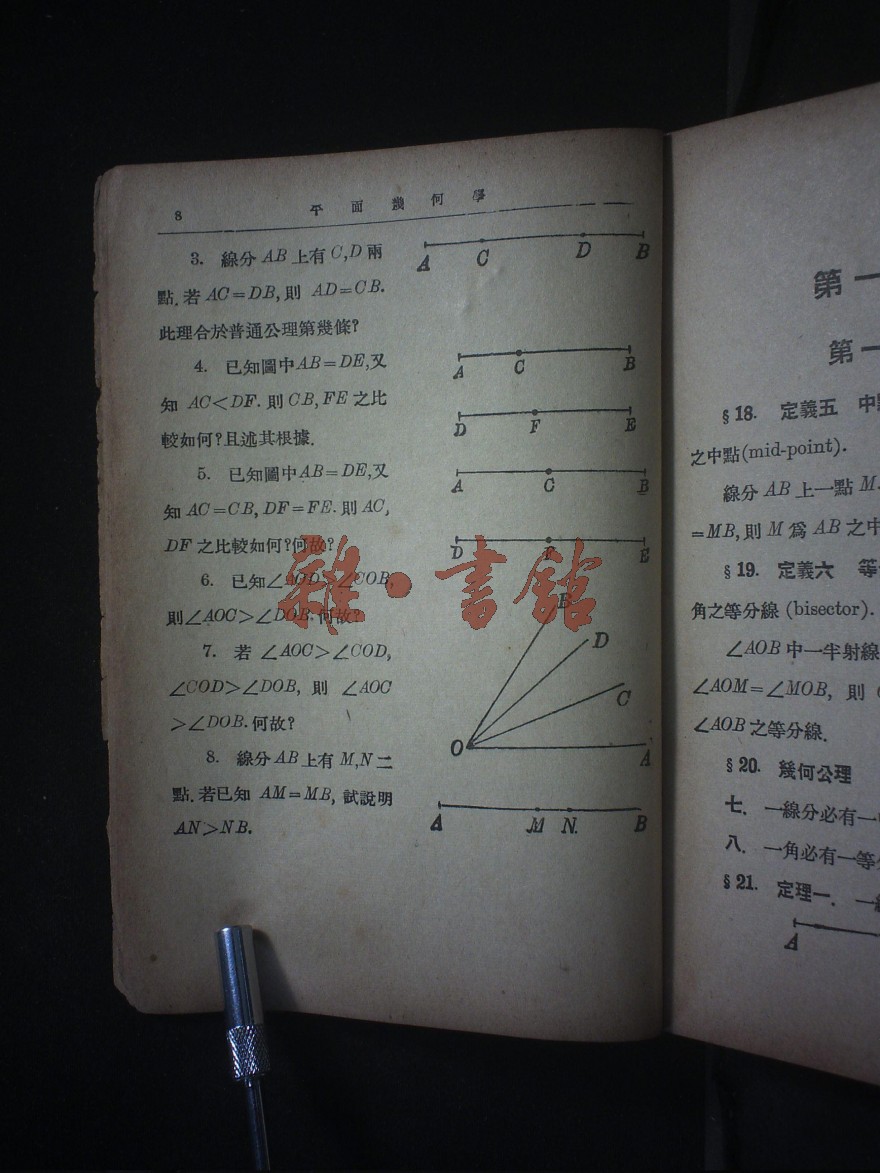 8 平面幾何學
3. 線分 AB 上有 C,D 兩
點. 若 AC=DB, 則 AD=CB.
此理合於普通公理第幾條?
A C D B
4. 已知圖中 AB=DE, 又
知 AC<DF. 則 CB, FE 之比
較如何? 且述其根據.
A C B
D F E
5. 已知圖中 AB=DE, 又
知 AC=CB, DF=FE. 則 AC,
DF 之比較如何? 何故?
A C B
D F E
6. 已知∠AOD ∠COB,
則∠AOC>∠DOB. 何故?
7. 若 ∠AOC>∠COD,
∠COD>∠DOB, 則 ∠AOC
>∠DOB. 何故?
B
D
C
O
A
8. 線分 AB 上有 M,N 二
點. 若已知 AM=MB, 試說明
AN>NB.
A M N. B
雜·書館
第一
第一
§18. 定義五 中
之中點 (mid-point).
線分 AB 上一點 M.
=MB, 則 M 爲 AB 之中
§19. 定義六 等
角之等分線 (bisector).
∠AOB 中一半射線
∠AOM=∠MOB, 則
∠AOB 之等分線.
§20. 幾何公理
七. 一線分必有一
八. 一角必有一等
§21. 定理一. 一
A